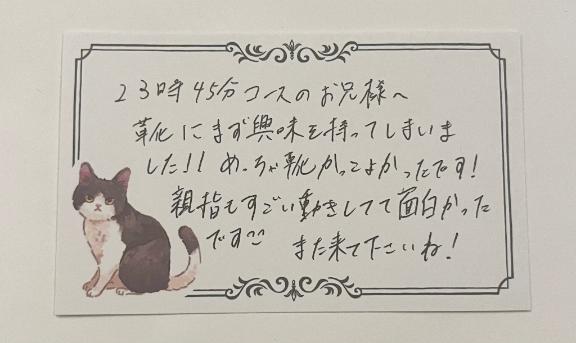 23時45分コースのお兄様へ
靴にまず興味を持ってしまいま
した!! めっちゃ靴かっこよかったです!
親指もすごい動きしてて面白かった
です また来て下さいね!